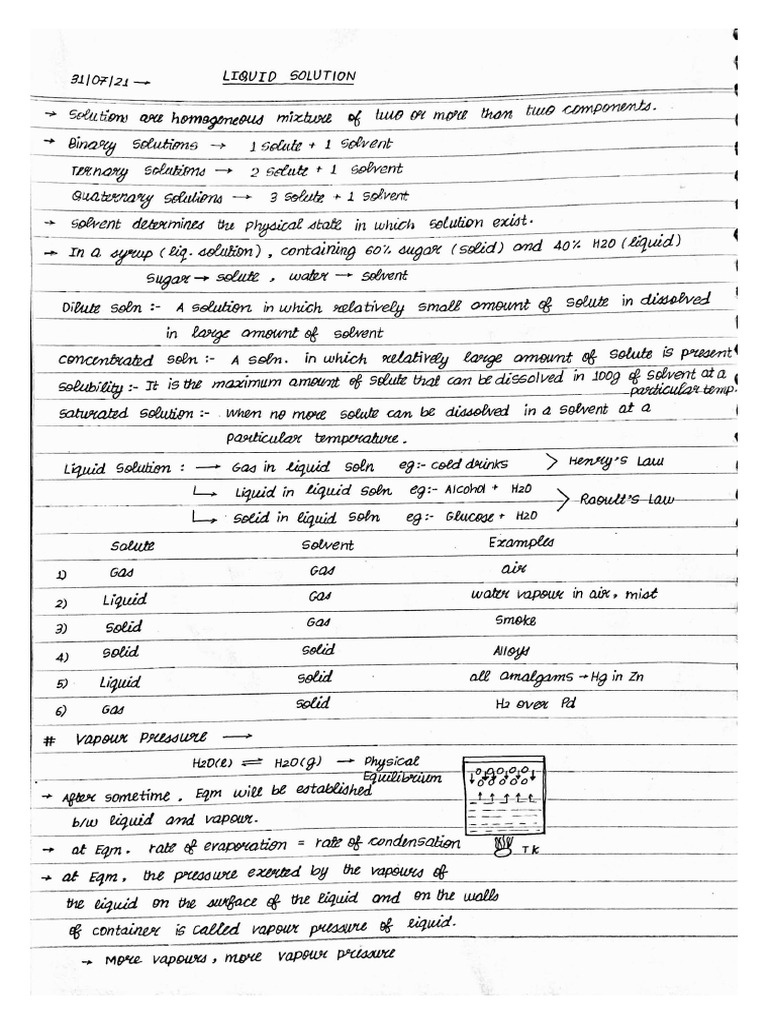 31/07/21 → LIQUID SOLUTION
→ Solutions are homogeneous mixture of two or more than two components.
→ Binary solutions → 1 solute + 1 solvent
Ternary solutions → 2 solute + 1 solvent
Quaternary solutions → 3 solute + 1 solvent
→ Solvent determines the physical state in which solution exist.
→ In a syrup (liq. solution), containing 60% sugar (solid) and 40% H2O (liquid)
Sugar → solute , water → solvent
Dilute soln :- A solution in which relatively small amount of solute in dissolved
in large amount of solvent
concentrated soln :- A soln. in which relatively large amount of solute is present
solubility :- It is the maximum amount of solute that can be dissolved in 100g of solvent at a
particular temp.
saturated solution :- when no more solute can be dissolved in a solvent at a
particular temperature.
Liquid Solution : → Gas in liquid soln eg:- cold drinks > Henry's Law
↳ Liquid in liquid soln eg:- Alcohol + H2O
> Raoult's Law
↳ Solid in liquid soln eg:- Glucose + H2O
Solute Solvent Examples
1) Gas Gas air
2) Liquid Gas water vapour in air, mist
3) Solid Gas Smoke
4) Solid Solid Alloys
5) Liquid Solid all amalgams → Hg in Zn
6) Gas Solid H2 over Pd
# Vapour Pressure →
H2O(l) ⇌ H2O(g) → Physical
Equilibrium
→ After sometime, Eqm will be established
b/w liquid and vapour.
→ at Eqm. rate of evaporation = rate of condensation
T K
→ at Eqm, the pressure exerted by the vapours of
the liquid on the surface of the liquid and on the walls
of container is called vapour pressure of liquid.
→ More vapours, more vapour pressure